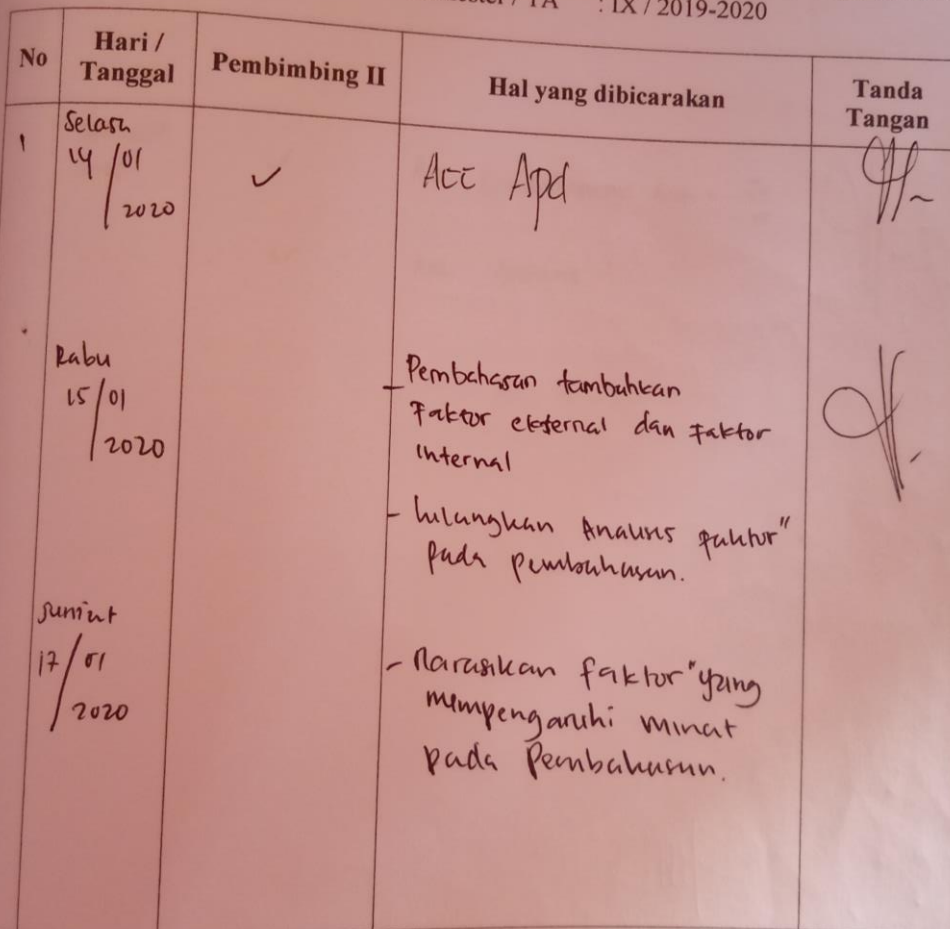 : IX / 2019-2020
No
Hari /
Tanggal
Pembimbing II
Hal yang dibicarakan
Tanda
Tangan
1
Selasa
14/01
2020
✓
Acc Apd
Rabu
15/01
2020
- Pembahasan tambahkan
Faktor eksternal dan Faktor
Internal
- Analisis faktor"
pada pembahasan.
Jum'at
17/01
2020
- Narasikan faktor" yang
mempengaruhi minat
pada Pembahasan.